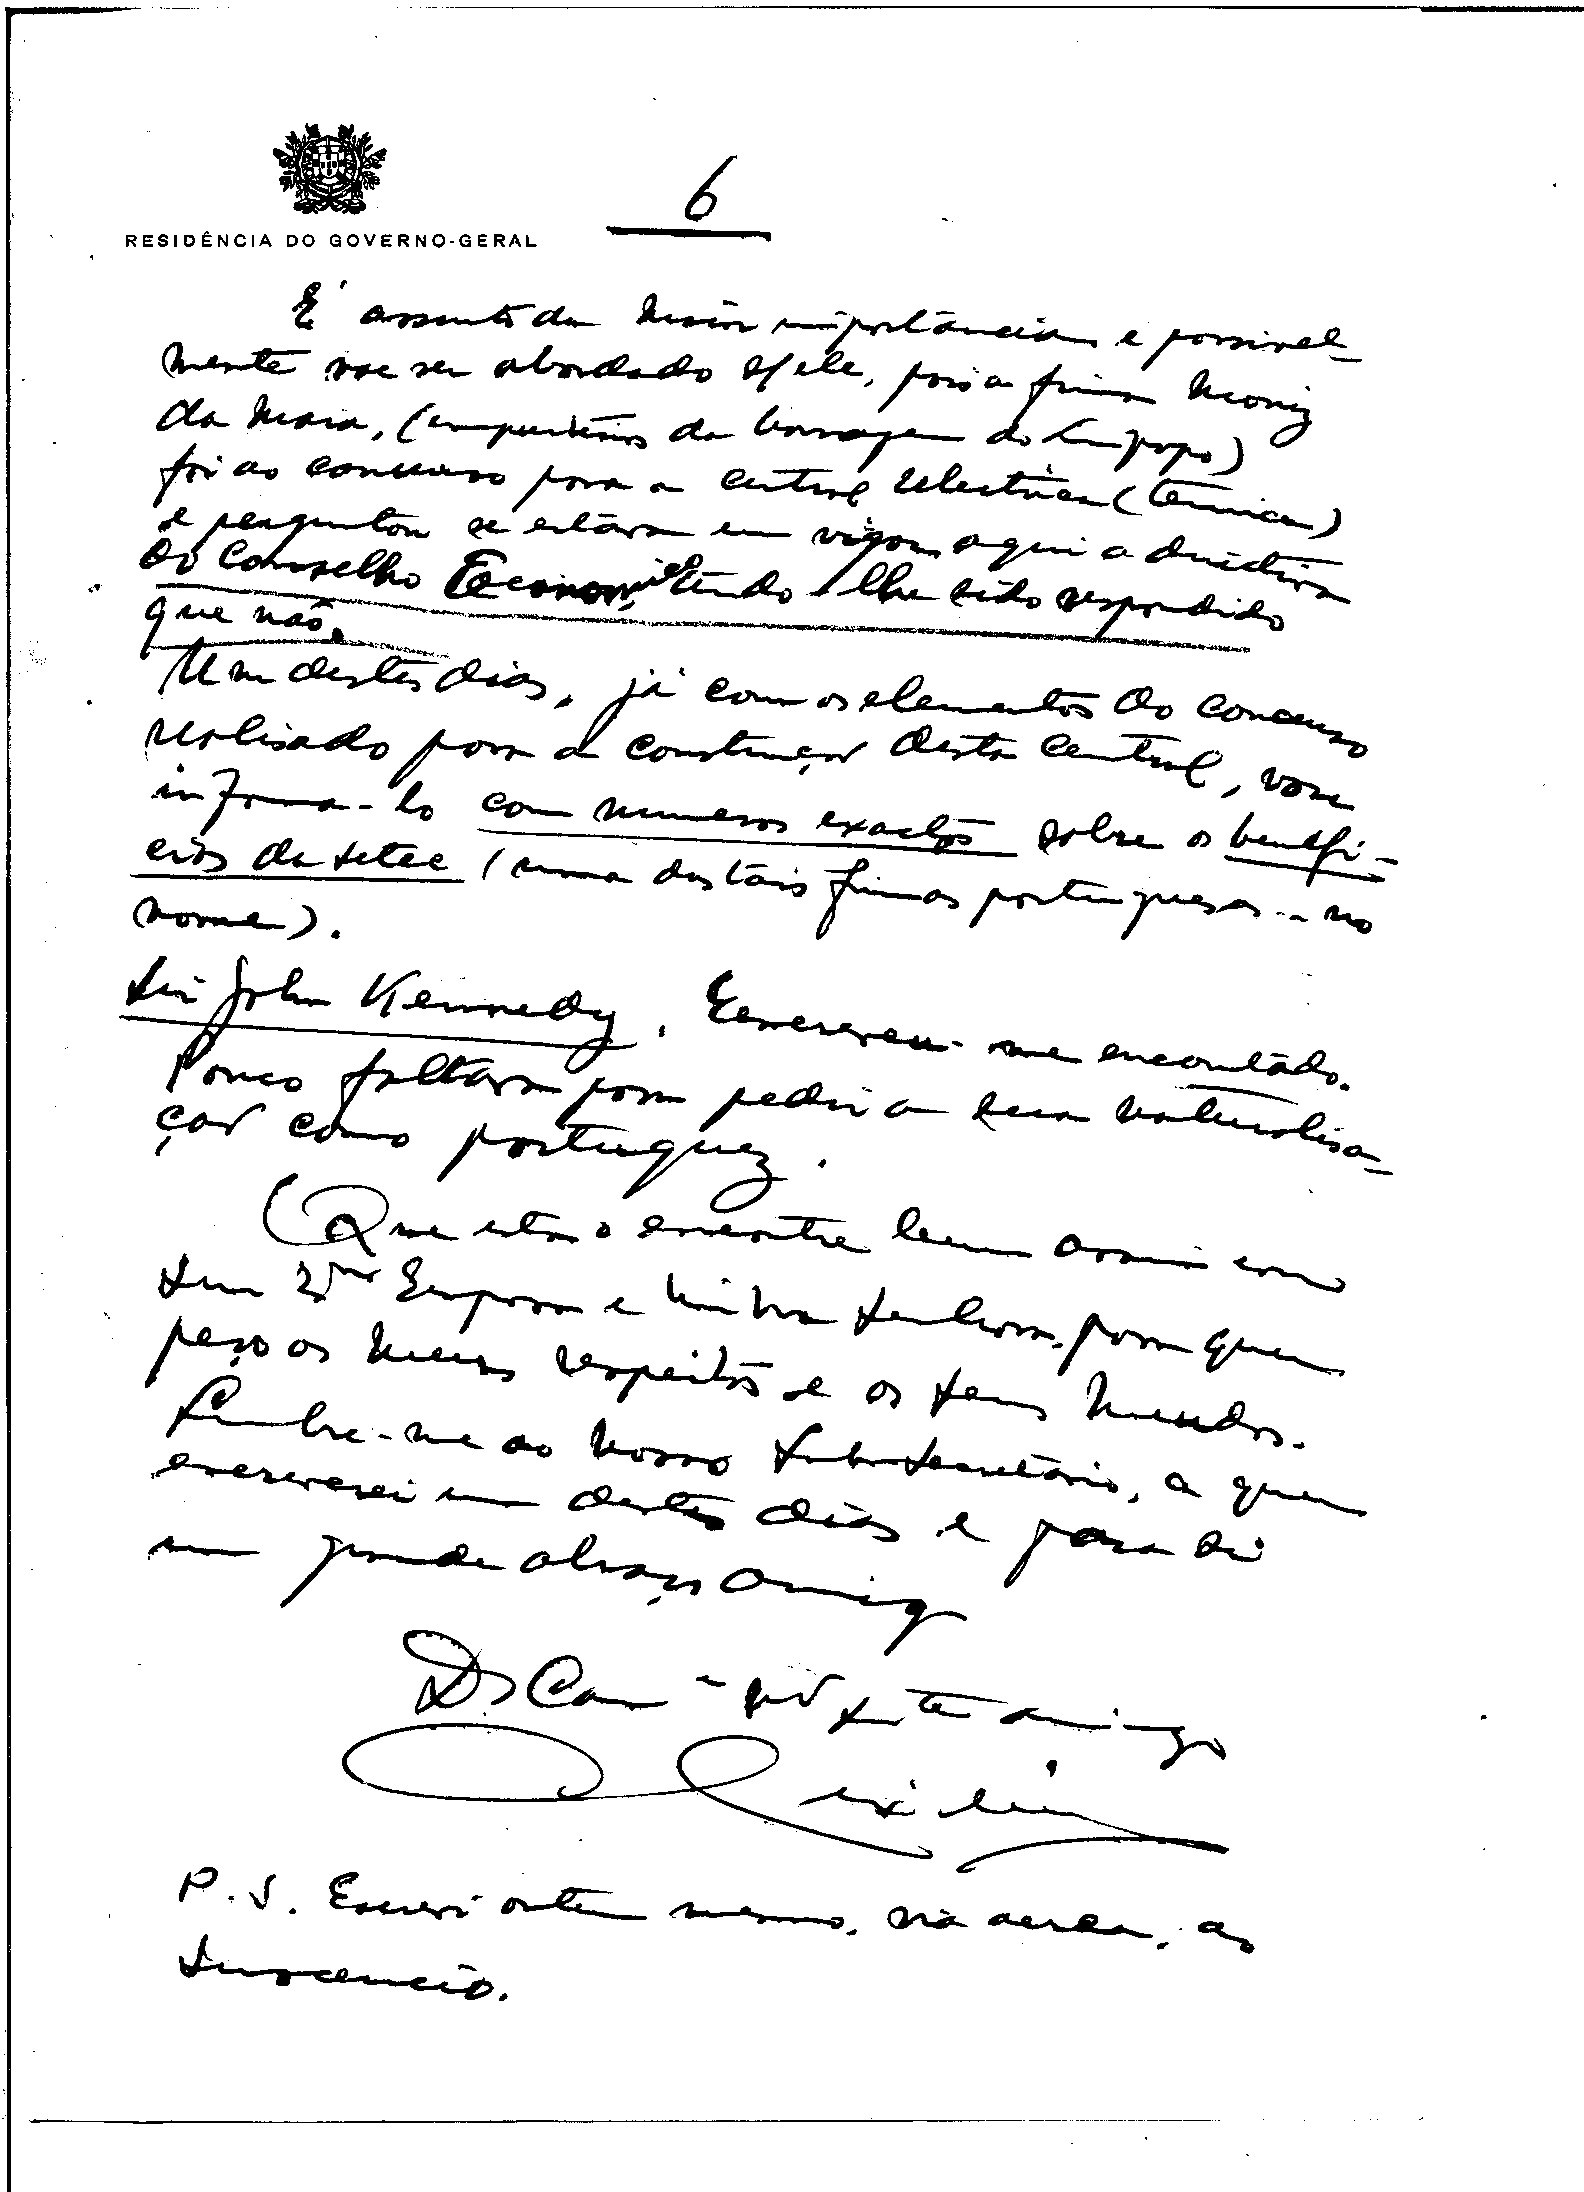 6
RESIDÊNCIA DO GOVERNO-GERAL
É assunto da maior importancia e possivel-
mente vae ser abordado p/ ele, pois a firma Moniz
da Maia, (empreiteiros da barragem do Limpopo)
foi ao concurso para a central electrica (termica)
e perguntou se estava em vigor aqui a directiva
do Conselho Economico tendo-lhe sido respondido
que não.
Um destes dias, já com os elementos do concurso
realisado para a construção desta central, vou
informa-lo com numeros exactos sobre os benefi-
cios da setee (uma das tais firmas portuguesas... no
nome).
Sir John Kennedy. Escreveu-me encantado.
Pouco faltará para pedir a sua naturalisa-
ção como portuguez.
Que esta o encontre bem assim como
sua Exma Esposa e minha senhora, para quem
peço os meus respeitos e os seus meudos.
Lembre-me ao nosso Subsecretário, a quem
escreverei um destes dias e para si
um grande abraço amigo
Do Cam- mto amigo
P.S. Escrevi ontem mesmo, via aerea, ao
Inocencio.